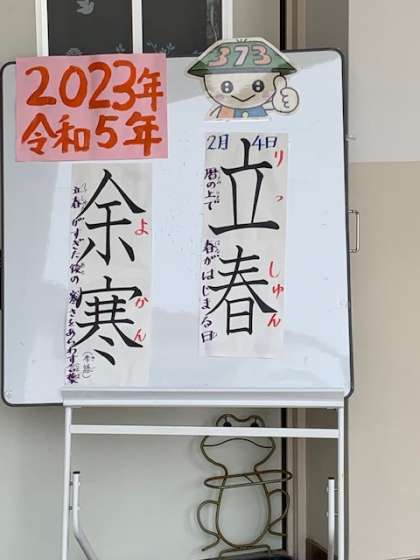 2023年
令和5年
373
2月4日
立春
りっしゅん
暦の上で 春がはじまる日
余寒
よかん
立春がすぎた後の寒さをあらわす言葉
(季語)